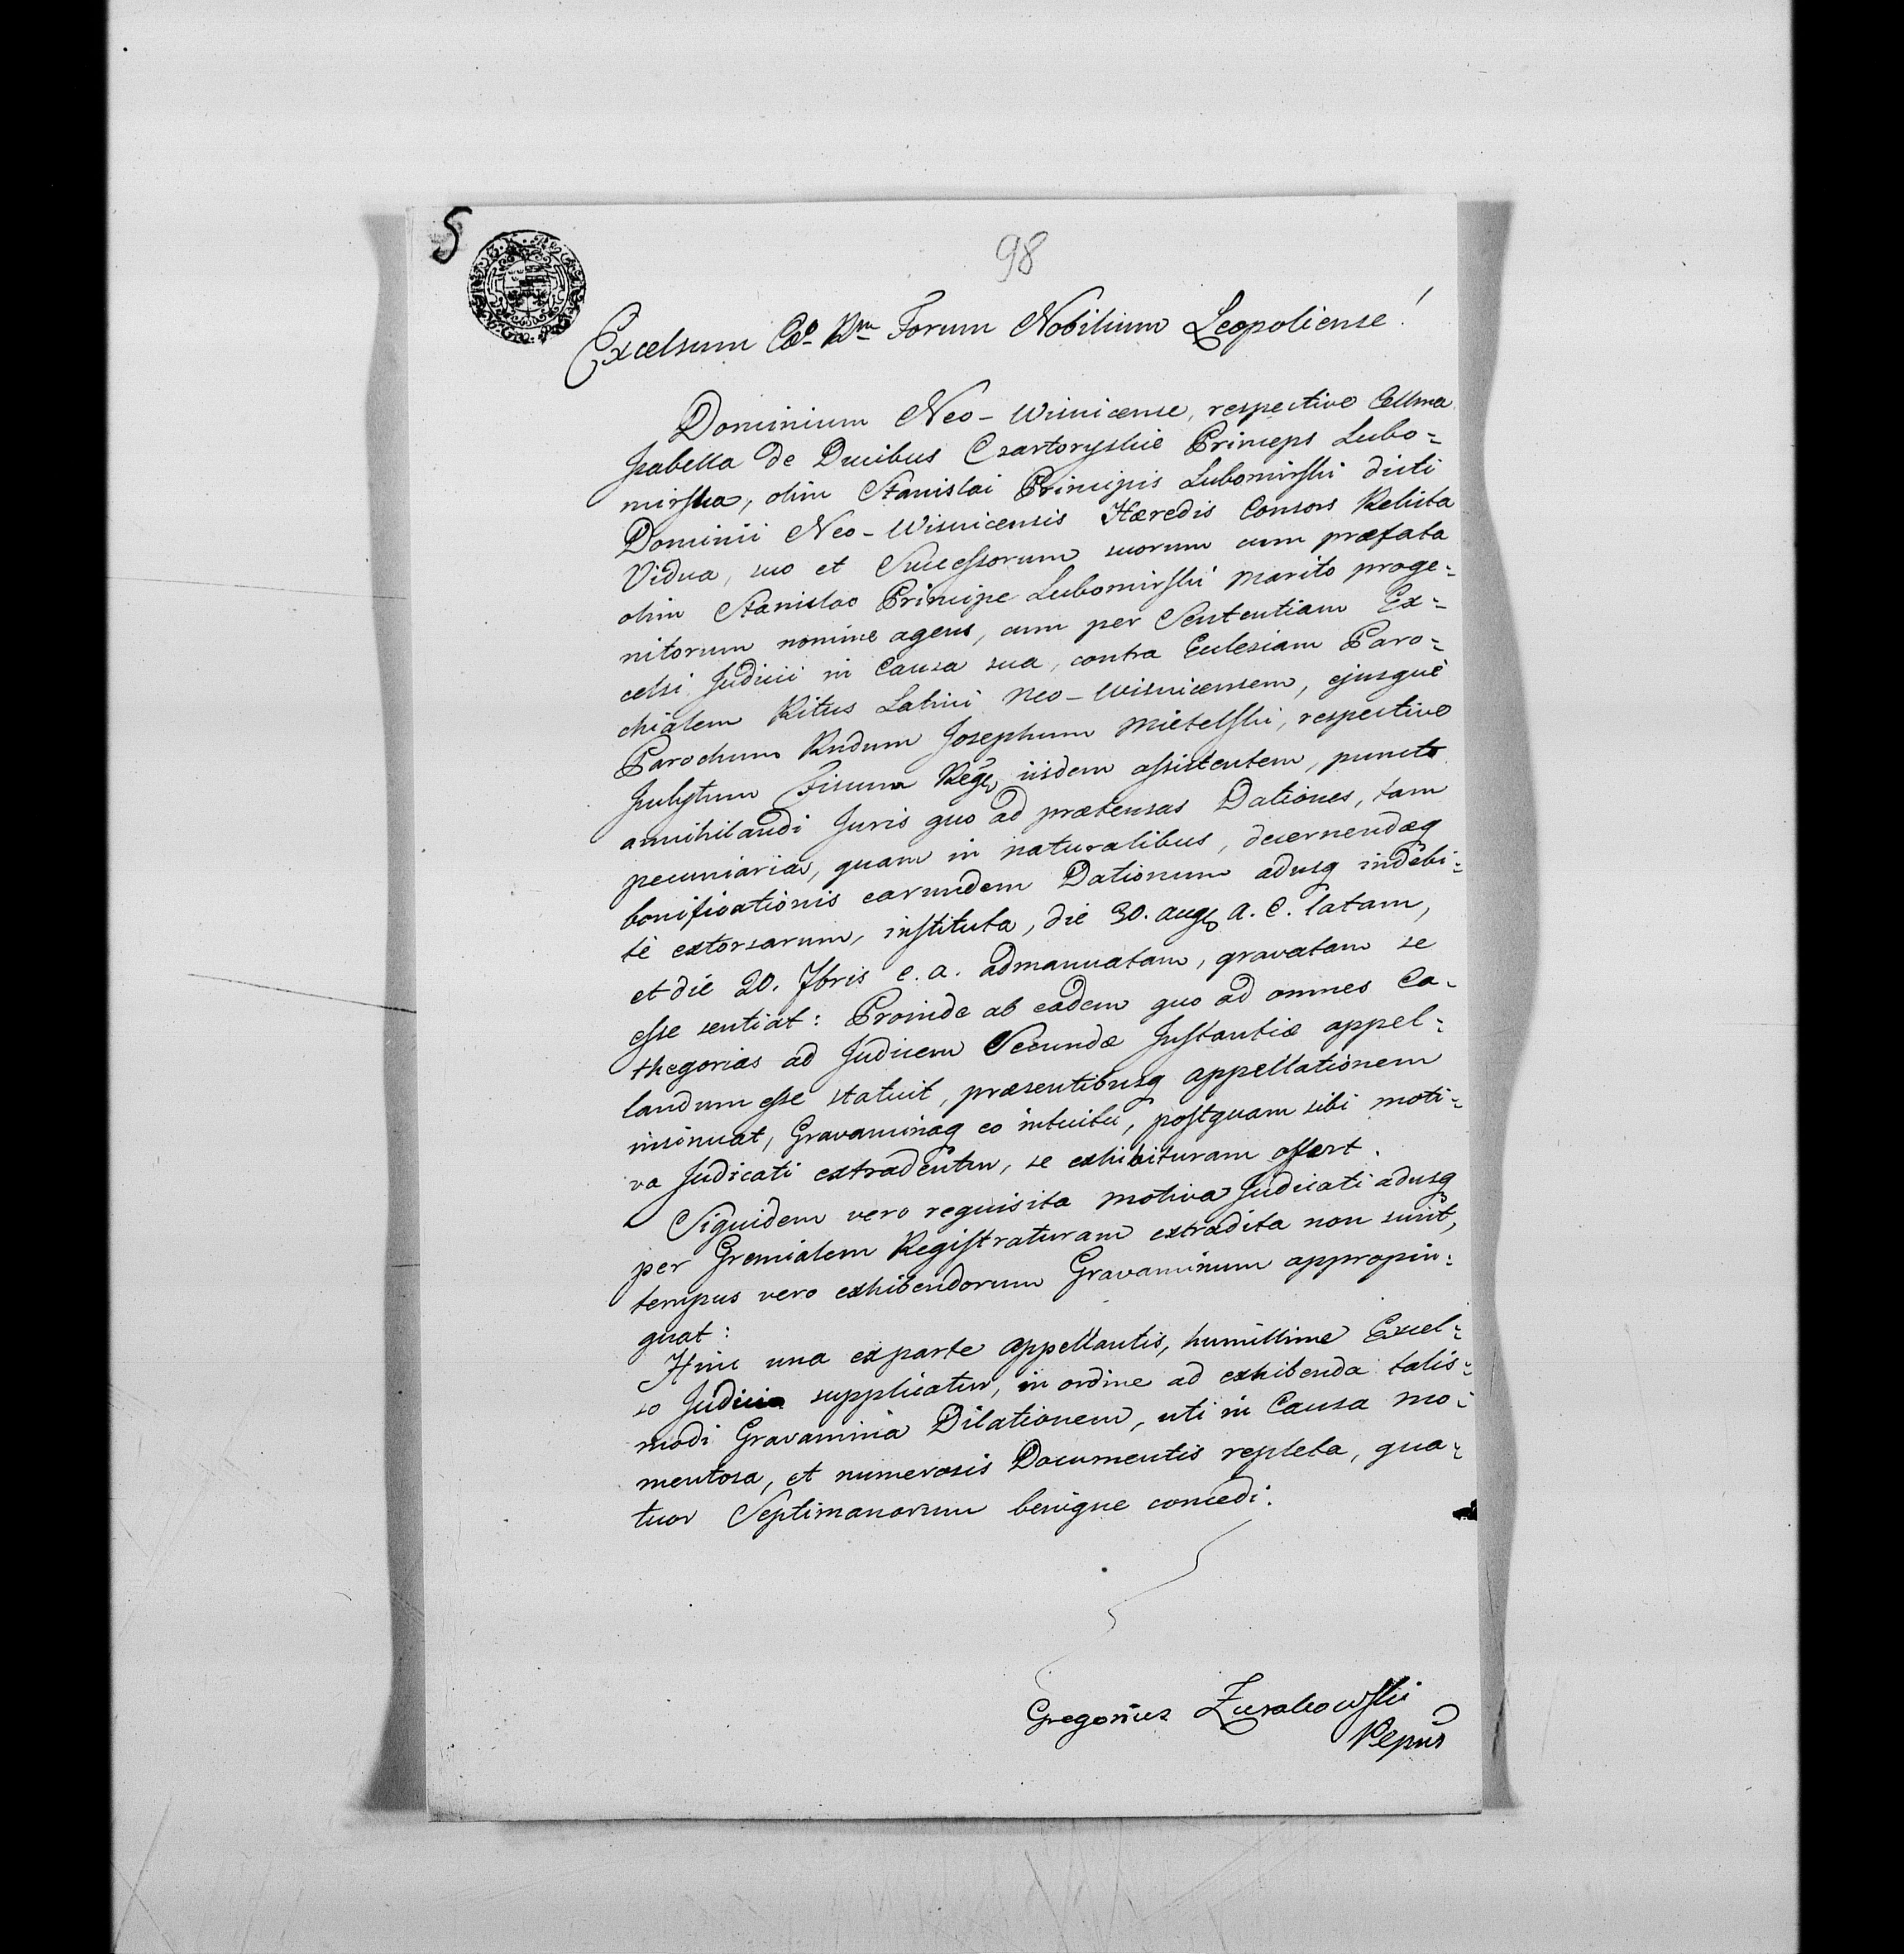 5
98
Excelsum Cæo Rm Forum Nobilium Leopoliense!
Dominium Neo-Wisnicense, respective Cellma
Isabella de Ducibus Czartoryskie Princeps Lubo=
mirska, olim Stanislai Principis Lubomirski dicti
Dominii Neo-Wisnicensis Hæredis Consors Relicta
Vidua, suo et Successorum suorum cum præfato
olim Stanislao Principe Lubomirski Marito proge=
nitorum nomine agens, cum per Sententiam Ex=
celsi Judicii in Causa sua, contra Ecclesiam Paro=
chialem Ritus Latini Neo-Wisnicensem, ejusquè
Parochum Rndum Josephum Mietelski, respective
Inclytum Fiscum Regm iisdem assistentem, puncto
annihilandi Juris quo ad prætensas Dationes, tam
pecuniarias, quam in naturalibus, decernendæq
bonificationis earundem Dationum adusq indebi=
tè extorsarum, instituta, die 30. Augi a. c. latam,
et die 20. 7bris e. a. admanuatam, gravatam se
esse sentiat: Proinde ab eadem quo ad omnes Ca=
thegorias ad Judicem Secundæ Instantiæ appel=
landum esse statuit, præsentibusq appellationem
insinuat, Gravaminaq eo intuitu, postquam sibi moti=
va Judicati extradentur, se exhibituram offert.
Siquidem vero requisita motiva Judicati adusq
per Gremialem Registraturam extradita non sunt,
tempus vero exhibendorum Gravaminum appropin=
quat:
Hinc una ex parte Appellantis, humillime Excel=
so Judicio supplicatur, in ordine ad exhibenda talis=
modi Gravamina Dilationem, uti in Causa mo=
mentosa, et numerosis Documentis repleta, qua=
tuor Septimanarum benigne concedi.
Gregorius Zurakowski